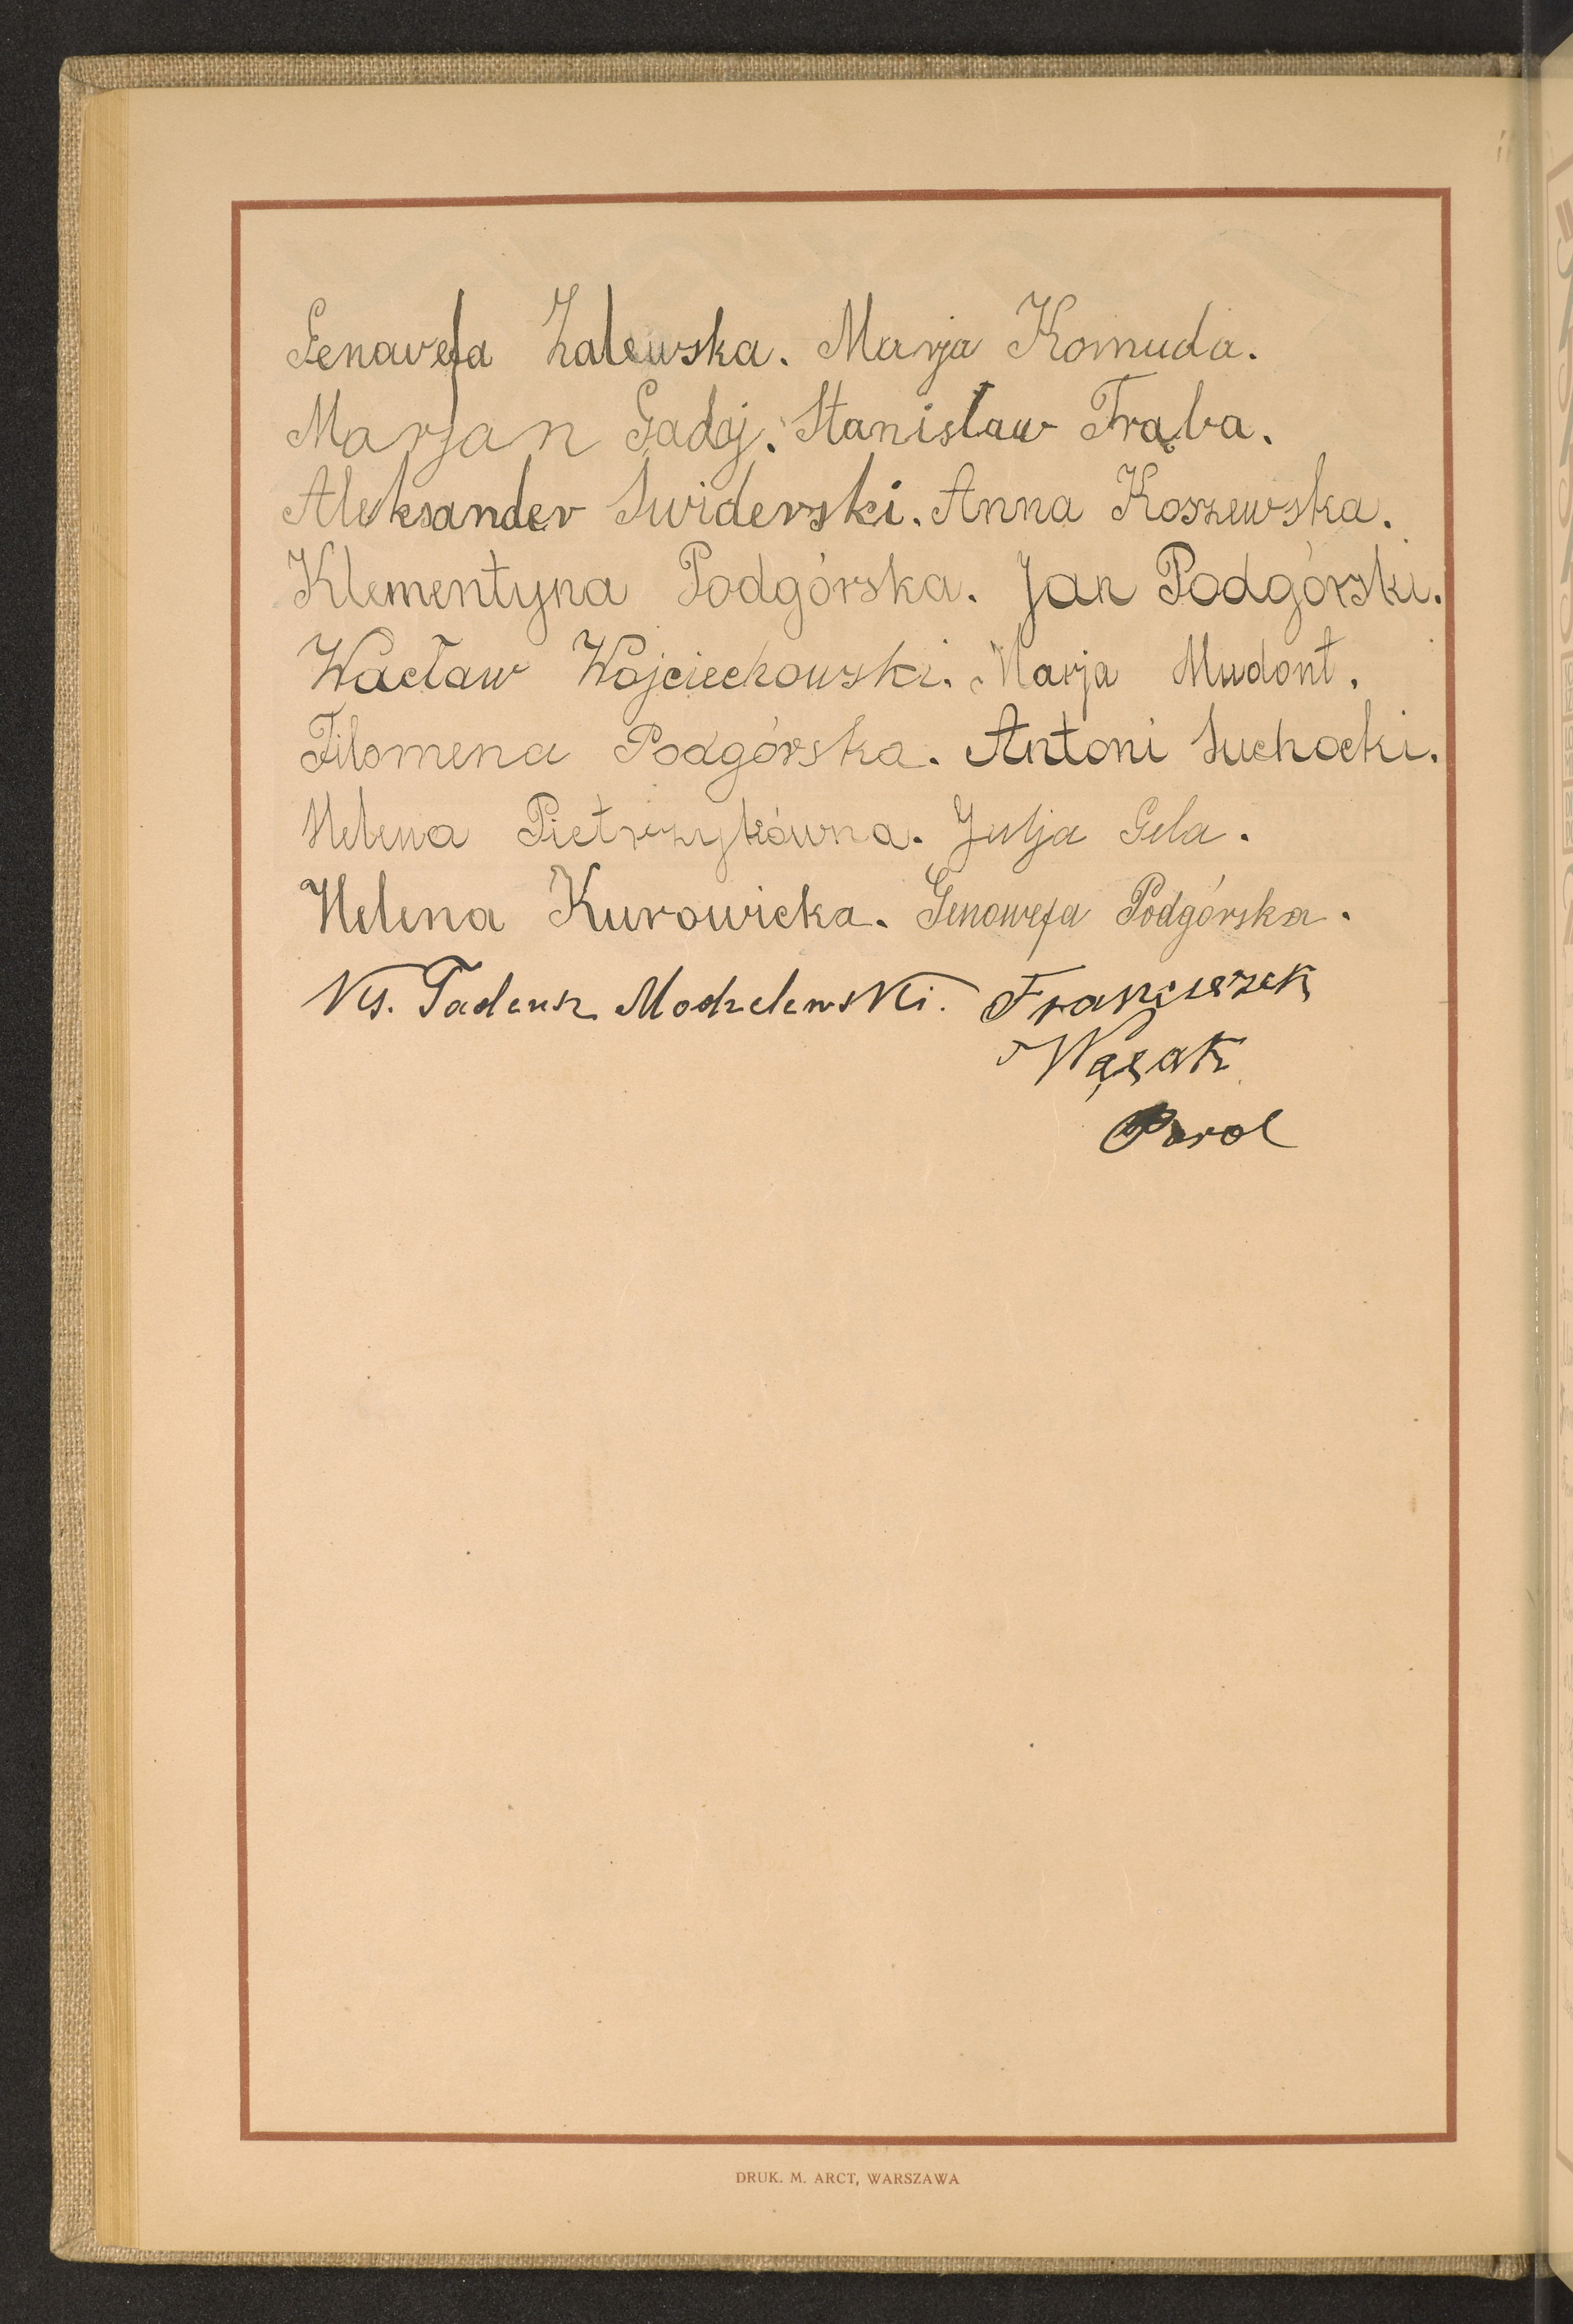 Genavefa Zalewska. Marja Komuda.
Marjan Gadaj. Stanisław Trąba.
Aleksander Swiderski. Anna Koszewska.
Klementyna Podgórska. Jan Podgórski.
Wacław Wojciechowski. Marja Mudont.
Filomena Podgórska. Antoni Suchocki.
Helena Pietrzykówna. Julja Gela.
Helena Kurowicka. Genowefa Podgórska.
Ks. Tadeusz Modzelewski. Franciszek
Wąsak
Parol
DRUK. M. ARCT, WARSZAWA